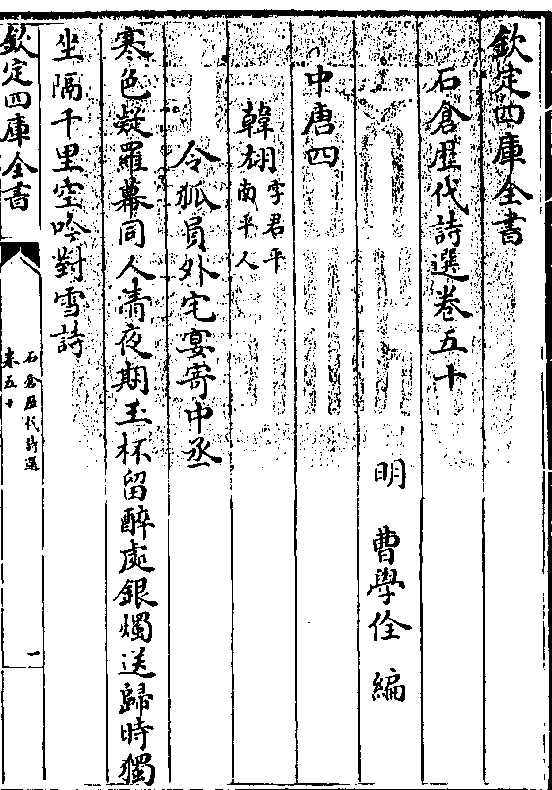 欽定四庫全書
石倉歷代詩選卷五十
明 曹學佺 編
中唐四
韓翃
字君平
南平人
令狐員外宅宴寄中丞
寒色凝羅幕同人清夜期玉杯留醉處銀燭送歸時獨
坐隔千里空吟對雪詩
欽定四庫全書
石倉歷代詩選
卷五十
一